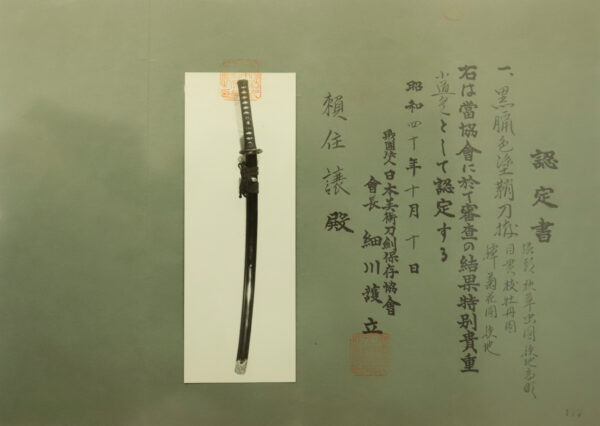 認定書
一、黒臘色塗鞘刀拵
縁頭 秋草虫図 後地高彫
目貫 枝牡丹図
鐔 菊花図 後地
右は當協會に於て審査の結果特別貴重
小道具として認定する
昭和四十年十月十日
財團法人日本美術刀劍保存協會
會長 細川護立
頼住讓殿